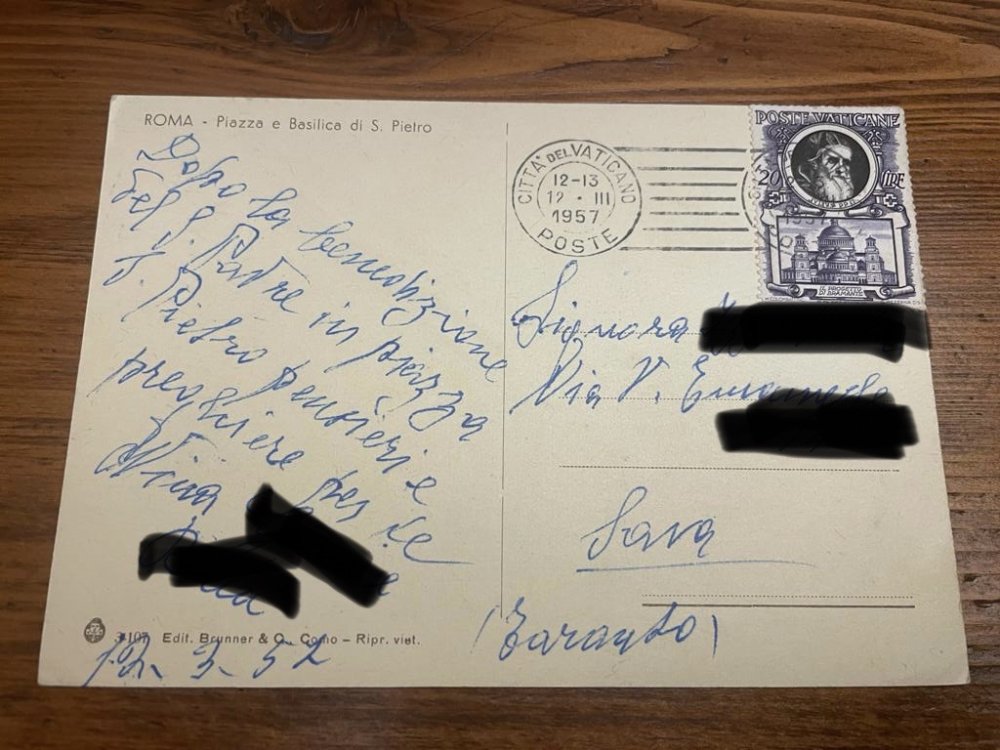 ROMA - Piazza e Basilica di S. Pietro
Dopo la benedizione
del S. Padre in piazza
S. Pietro pensieri e
preghiere per te
Nina
12-3-57
3107 Edit. Brunner & C. Como - Ripr. viet.
CITTÀ DEL VATICANO
12-13
12 · III
1957
POSTE
POSTE VATICANE
20 LIRE
IL PROGETTO
DI BRAMANTE
Signora
Via V. Emanuele
Sava
(Taranto)